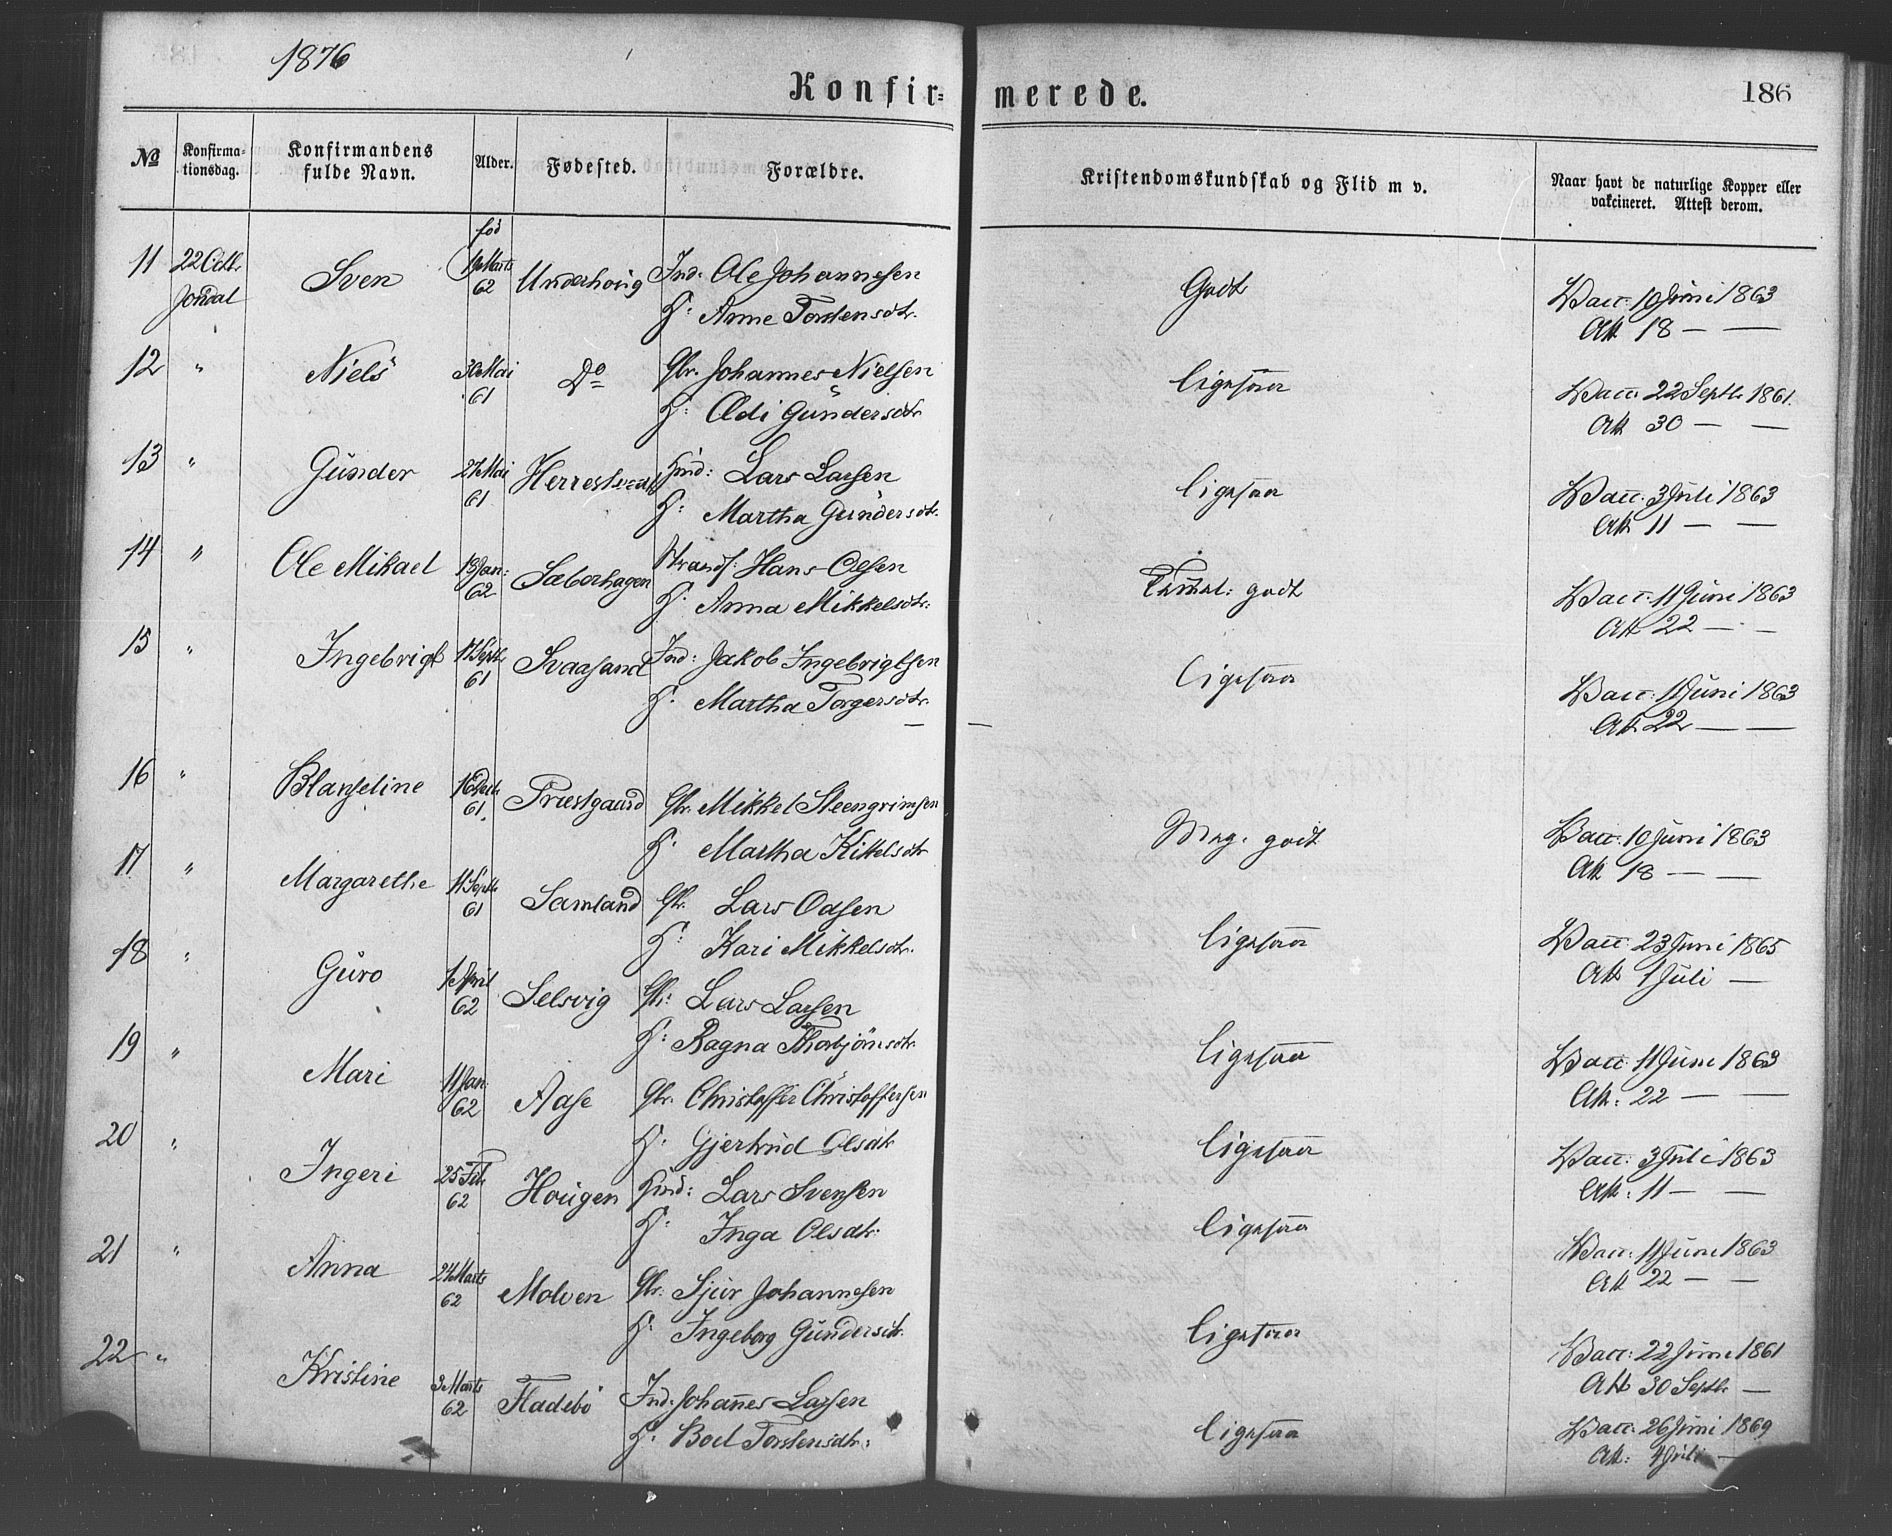 1876
186
Konfir= merede.
No
Konfirma-
tionsdag.
Konfirmandens
fulde Navn.
Alder.
Fødested.
Forældre.
Kristendomskundskab og Flid m v.
Naar havt de naturlige Kopper eller
vakcineret. Attest derom.
fød
11 22 Octbr Sven 19 Marts Underhoug Ind: Ole Johannesen Godt Vacc: 10 Juni 1863
Jondal 62 H: Anne Torstensdtr. Att 18 — —
12 " Niels 30 Mai Do Gbr. Johannes Nielsen Ligesaa Vacc: 22 Septbr 1861.
61 H: Ædi Gundersdtr Att 30 — —
13 " Gunder 27 Mai Herrestvedt Huud: Lars Larsen Ligesaa Vacc: 3 Juli 1863
61 H: Martha Gundersdtr. Att 11 — —
14 " Ole Mikael 13 Jan: Sæborhagen Strands: Hans Olsen godt Vacc: 11 Juni 1863
62 H: Anna Mikkelsdtr: Att 22 — —
15 " Ingebrigt 17 Septbr Svaasand Ind: Jakob Ingebrigtsen Ligesaa Vacc: 11 Juni 1863
61 H: Martha Torgersdtr. Att 22 — —
16 " Blanseline 61. Præstgaard Gbr. Mikkel Steengrimsen Meg. godt Vacc: 10 Juni 1863
H: Martha Kittelsdtr Att 18 — —
17 " Margarethe 11 Septbr Samland Gbr. Lars Odsen Ligesaa Vacc: 23 Juni 1865
61 H: Kari Mikkelsdtr. Att 1 Juli —
18 " Guro 1 April Selsvig Gbr: Lars Larsen Ligesaa Vacc: 11 Juni 1863
62 H: Ragna Thorbjörnsdtr. Att: 22 — —
19 " Mari 11 Jan Aase Gbr. Christoffer Christoffersen Ligesaa Vacc: 3 Juli 1863
62 H: Gjertrud Olsdtr Att: 11 — —
20 " Ingeri 25 Feb. Hougen Huud: Lars Svensen Ligesaa Vacc: 11 Juni 1863
62 H: Inga Olsdtr. Att 22 — —
21 " Anna 24 Marts Molven Gbr: Sjur Johannesen Ligesaa Vacc: 22 Juni 1861
62 H: Ingeborg Gundersdtr. Att 30 Septbr —
22 " Kristine 3 Marts Fladebö Ind: Johannes Larsen Ligesaa Vacc: 26 Juni 1869
62 H: Boel Torstensdtr: Att: 4 Juli —